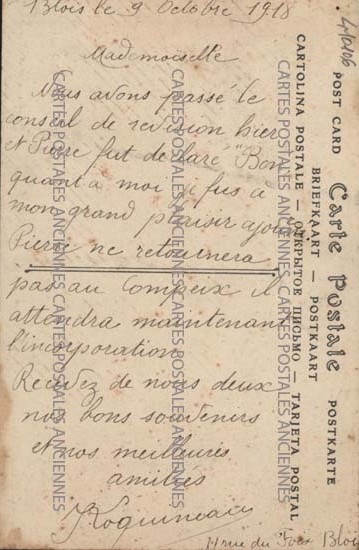 Blois le 9 Octobre 1918
Mademoiselle
Nous avons passé le
conseil de revision hier
et Pierre fut déclaré "Bon"
quant a moi je fus à
mon grand plaisir ajou
Pierre ne retournera
pas au Compeix il
attendra maintenant
l'incorporation
Recevez de nous deux
nos bons souvenirs
et nos meilleures
amitiés
Roquineau
11 rue du Foix Blois
4/0/06
Carte Postale
POSTKARTE
POST CARD
BRIEFKAART — POSTKAART
CARTOLINA POSTALE — ОТКРЫТОЕ ПИСЬМО — TARJETA POSTAL
CARTES POSTALES ANCIENNES CARTES POSTALES ANCIENNES
CARTES POSTALES ANCIENNES CARTES POSTALES ANCIENNES
CARTES POSTALES ANCIENNES CARTES POSTALES ANCIENNES